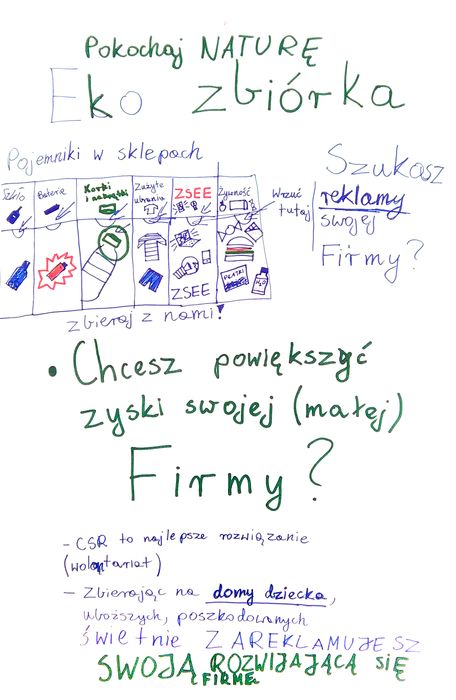 Pokochaj NATURĘ
Eko zbiórka
Pojemniki w sklepach
Szkło
Baterie
Korki
i nakrętki
Zużyte
ubrania
ZSEE
Żywność
Wrzuć
tutaj
ZSEE
PŁATKI
H₂O
zbieraj z nami!
Szukasz
reklamy
swojej
Firmy?
• Chcesz powiększyć
zyski swojej (małej)
Firmy?
- CSR to najlepsze rozwiązanie
(wolontariat)
- Zbierając na domy dziecka,
uboższych, poszkodowanych
świetnie ZAREKLAMUJESZ
SWOJĄ ROZWIJAJĄCĄ SIĘ
FIRMĘ